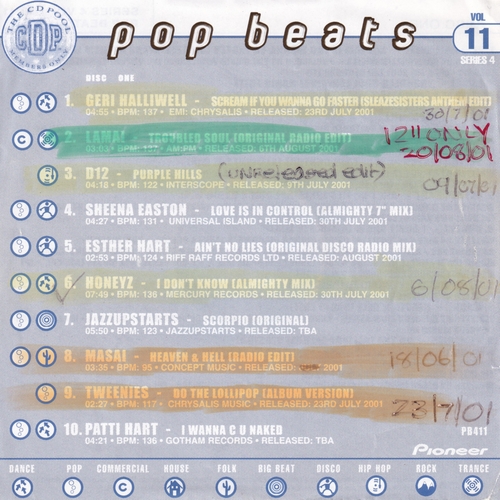 THE CD POOL
CDP
MEMBERS ONLY
pop beats
VOL
11
SERIES 4
DISC ONE
1. GERI HALLIWELL - SCREAM IF YOU WANNA GO FASTER (SLEAZESISTERS ANTHEM EDIT)
04:55 • BPM: 137 • EMI: CHRYSALIS • RELEASED: 23RD JULY 2001
30/7/01
2. LAMAI - TROUBLED SOUL (ORIGINAL RADIO EDIT)
03:03 • BPM: 137 • AM:PM • RELEASED: 6TH AUGUST 2001
12" ONLY
20/08/01
3. D12 - PURPLE HILLS (unreleased edit)
04:18 • BPM: 122 • INTERSCOPE • RELEASED: 9TH JULY 2001
09/07/01
4. SHEENA EASTON - LOVE IS IN CONTROL (ALMIGHTY 7" MIX)
04:27 • BPM: 131 • UNIVERSAL ISLAND • RELEASED: 30TH JULY 2001
5. ESTHER HART - AIN'T NO LIES (ORIGINAL DISCO RADIO MIX)
02:53 • BPM: 124 • RIFF RAFF RECORDS LTD • RELEASED: AUGUST 2001
6. HONEYZ - I DON'T KNOW (ALMIGHTY MIX)
07:49 • BPM: 136 • MERCURY RECORDS • RELEASED: 30TH JULY 2001
6/08/01
7. JAZZUPSTARTS - SCORPIO (ORIGINAL)
05:50 • BPM: 123 • JAZZUPSTARTS • RELEASED: TBA
8. MASAI - HEAVEN & HELL (RADIO EDIT)
03:35 • BPM: 95 • CONCEPT MUSIC • RELEASED: 2001
18/06/01
9. TWEENIES - DO THE LOLLIPOP (ALBUM VERSION)
02:27 • BPM: 117 • CHRYSALIS MUSIC • RELEASED: 23RD JULY 2001
23/7/01
10. PATTI HART - I WANNA C U NAKED
04:21 • BPM: 136 • GOTHAM RECORDS • RELEASED: TBA
PB411
Pioneer
DANCE POP COMMERCIAL HOUSE FOLK BIG BEAT DISCO HIP HOP ROCK TRANCE